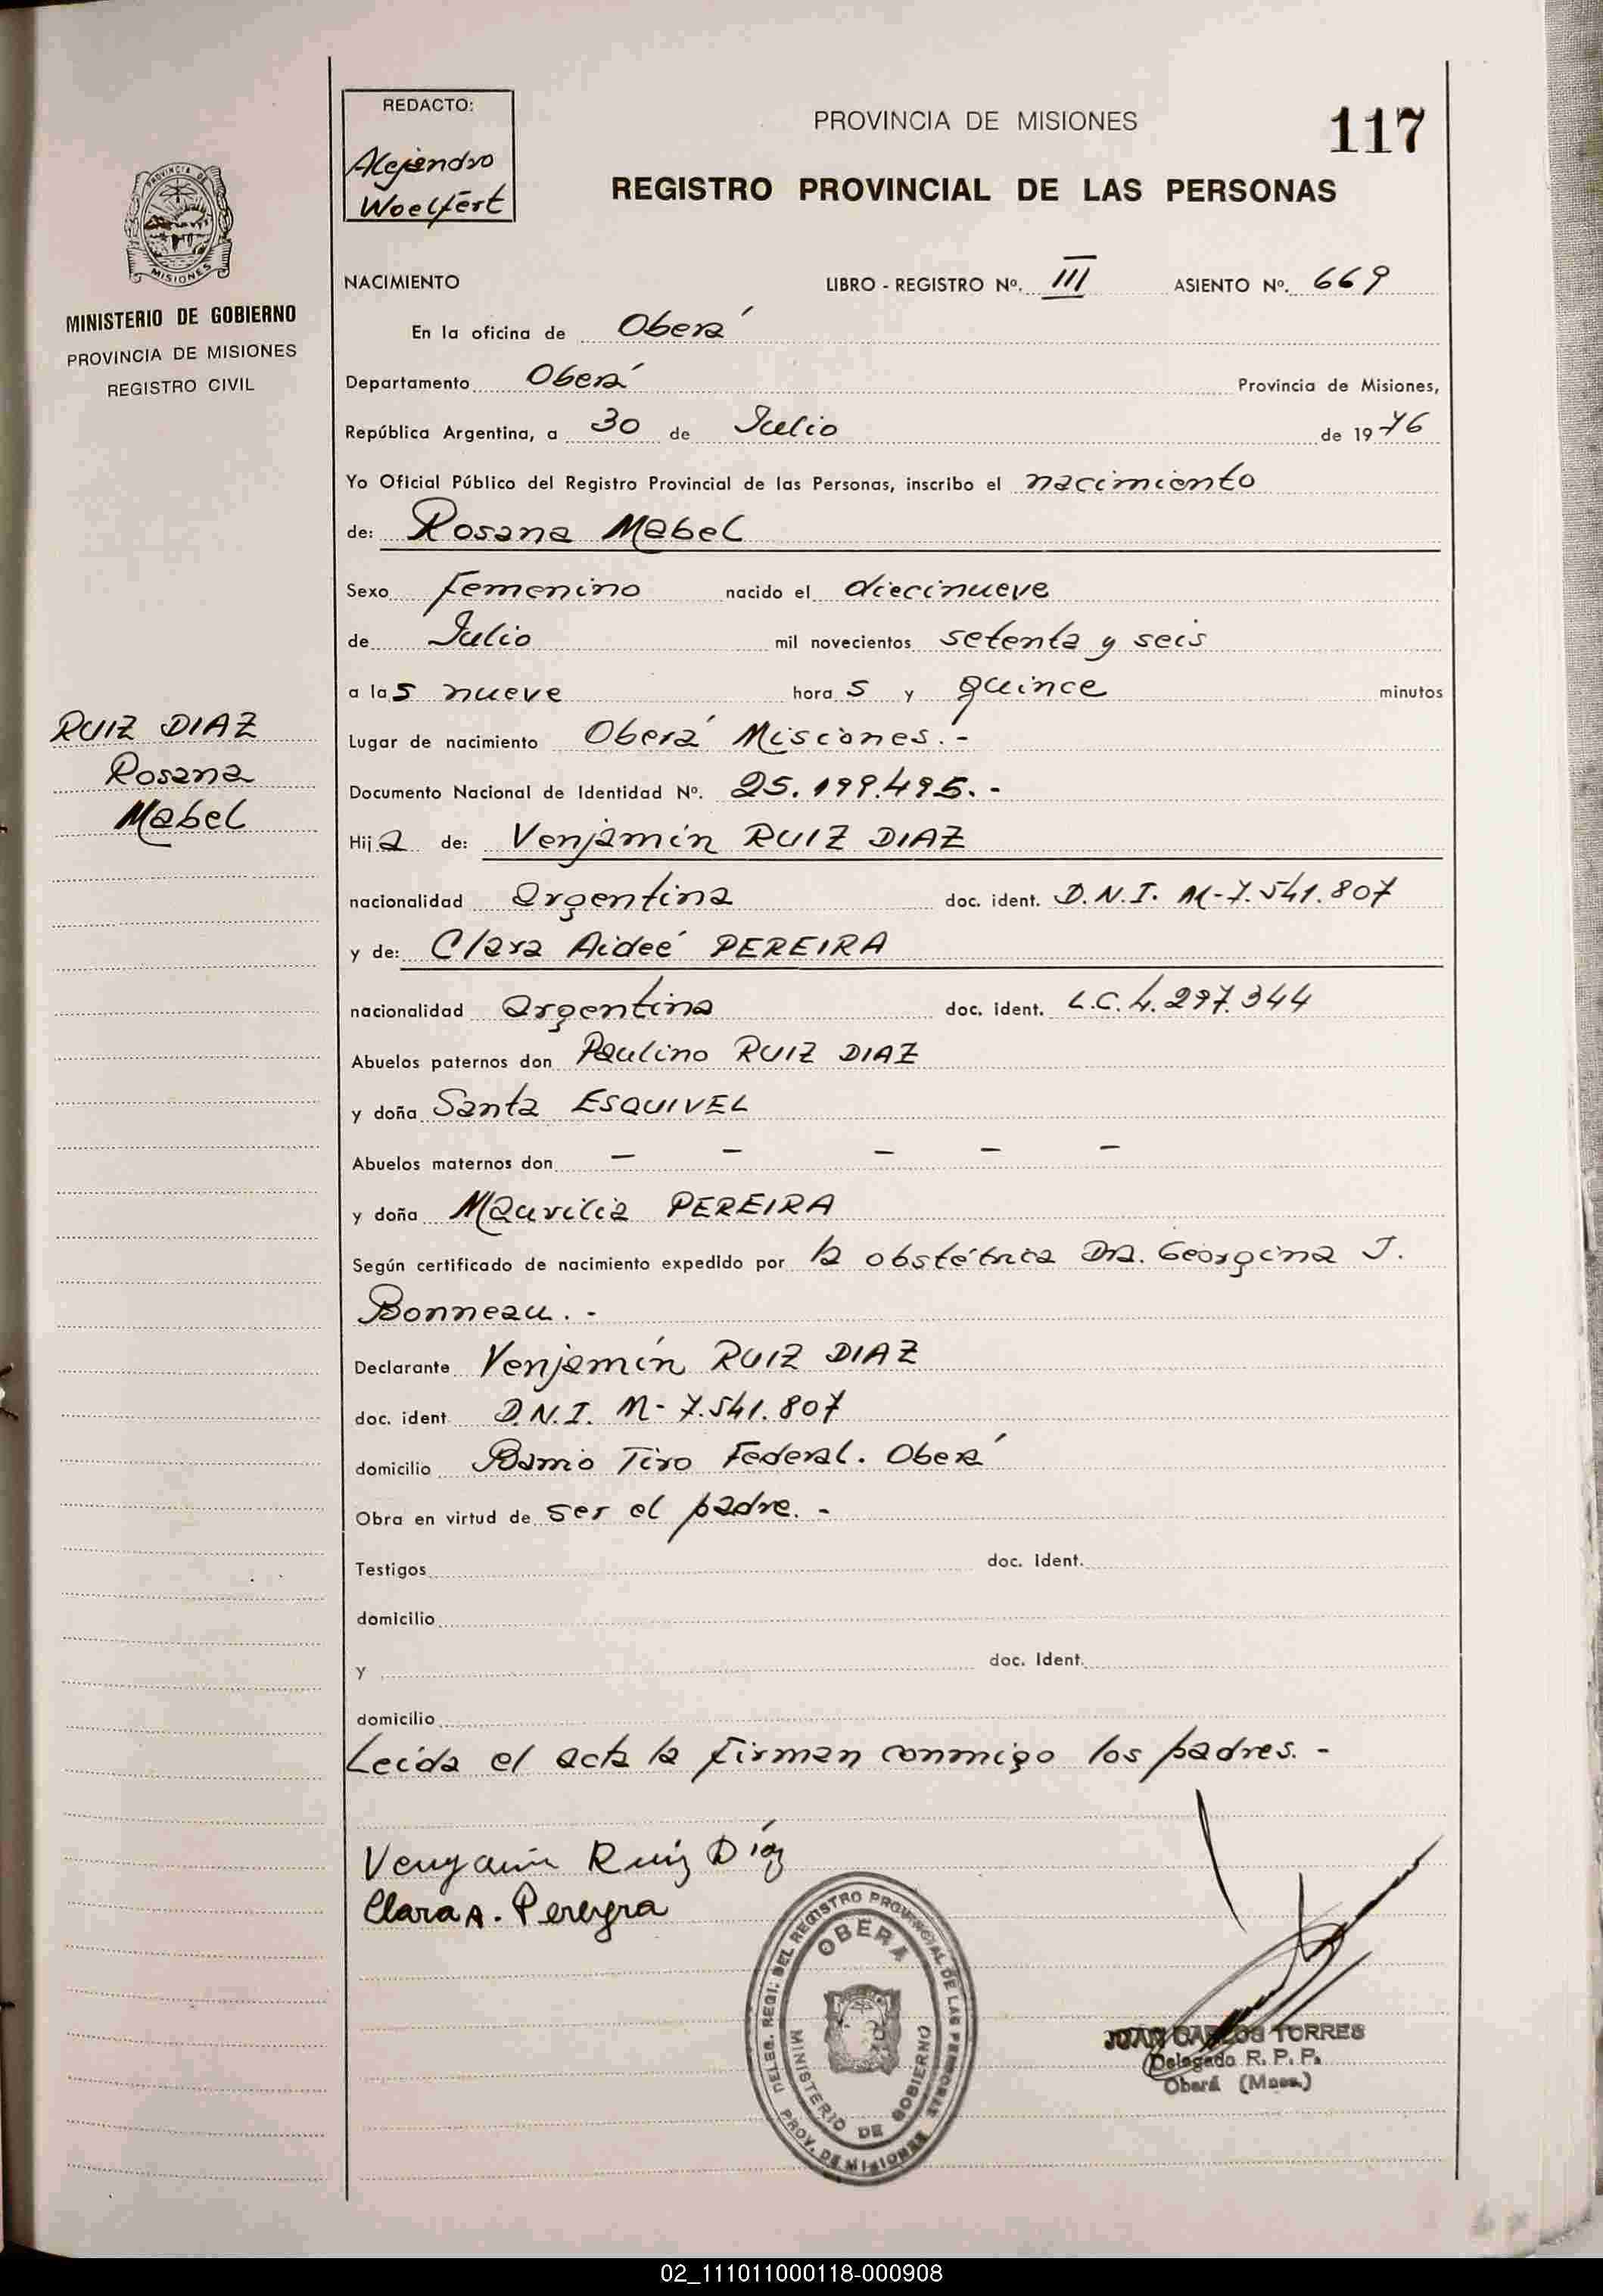 REDACTO:
Alejandro
Woelfert
PROVINCIA DE MISIONES
117
REGISTRO PROVINCIAL DE LAS PERSONAS
PROVINCIA DE
MISIONES
MINISTERIO DE GOBIERNO
PROVINCIA DE MISIONES
REGISTRO CIVIL
NACIMIENTO LIBRO - REGISTRO Nº. III ASIENTO Nº. 669
En la oficina de Oberá
Departamento Oberá Provincia de Misiones,
República Argentina, a 30 de Julio de 1976
Yo Oficial Público del Registro Provincial de las Personas, inscribo el nacimiento
de: Rosana Mabel
Sexo Femenino nacido el diecinueve
de Julio mil novecientos setenta y seis
a las nueve horas y quince minutos
RUIZ DIAZ
Rosana
Mabel
Lugar de nacimiento Oberá Misiones.-
Documento Nacional de Identidad Nº. 25.199.495.-
Hija de: Venjamín RUIZ DIAZ
nacionalidad Argentina doc. ident. D.N.I. M-7.541.807
y de: Clara Aideé PEREIRA
nacionalidad Argentina doc. ident. L.C. 4.297.344
Abuelos paternos don Paulino RUIZ DIAZ
y doña Santa ESQUIVEL
Abuelos maternos don - - - - -
y doña Maurilia PEREIRA
Según certificado de nacimiento expedido por la obstétrica Dra. Georgina J.
Bonneau.-
Declarante Venjamín RUIZ DIAZ
doc. ident. D.N.I. M-7.541.807
domicilio Barrio Tiro Federal. Oberá
Obra en virtud de ser el padre.-
Testigos doc. ident.
domicilio
y doc. ident.
domicilio
Leída el acta la firman conmigo los padres.-
Venjamin Ruiz Díaz
Clara A. Pereyra
DELEG. REGI. DEL REGISTRO PROVINCIAL DE LAS PERSONAS
OBERÁ
MINISTERIO DE GOBIERNO
PROV. DE MISIONES
JUAN CARLOS TORRES
Delegado R. P. P.
Oberá (Mnes.)
02_111011000118-000908